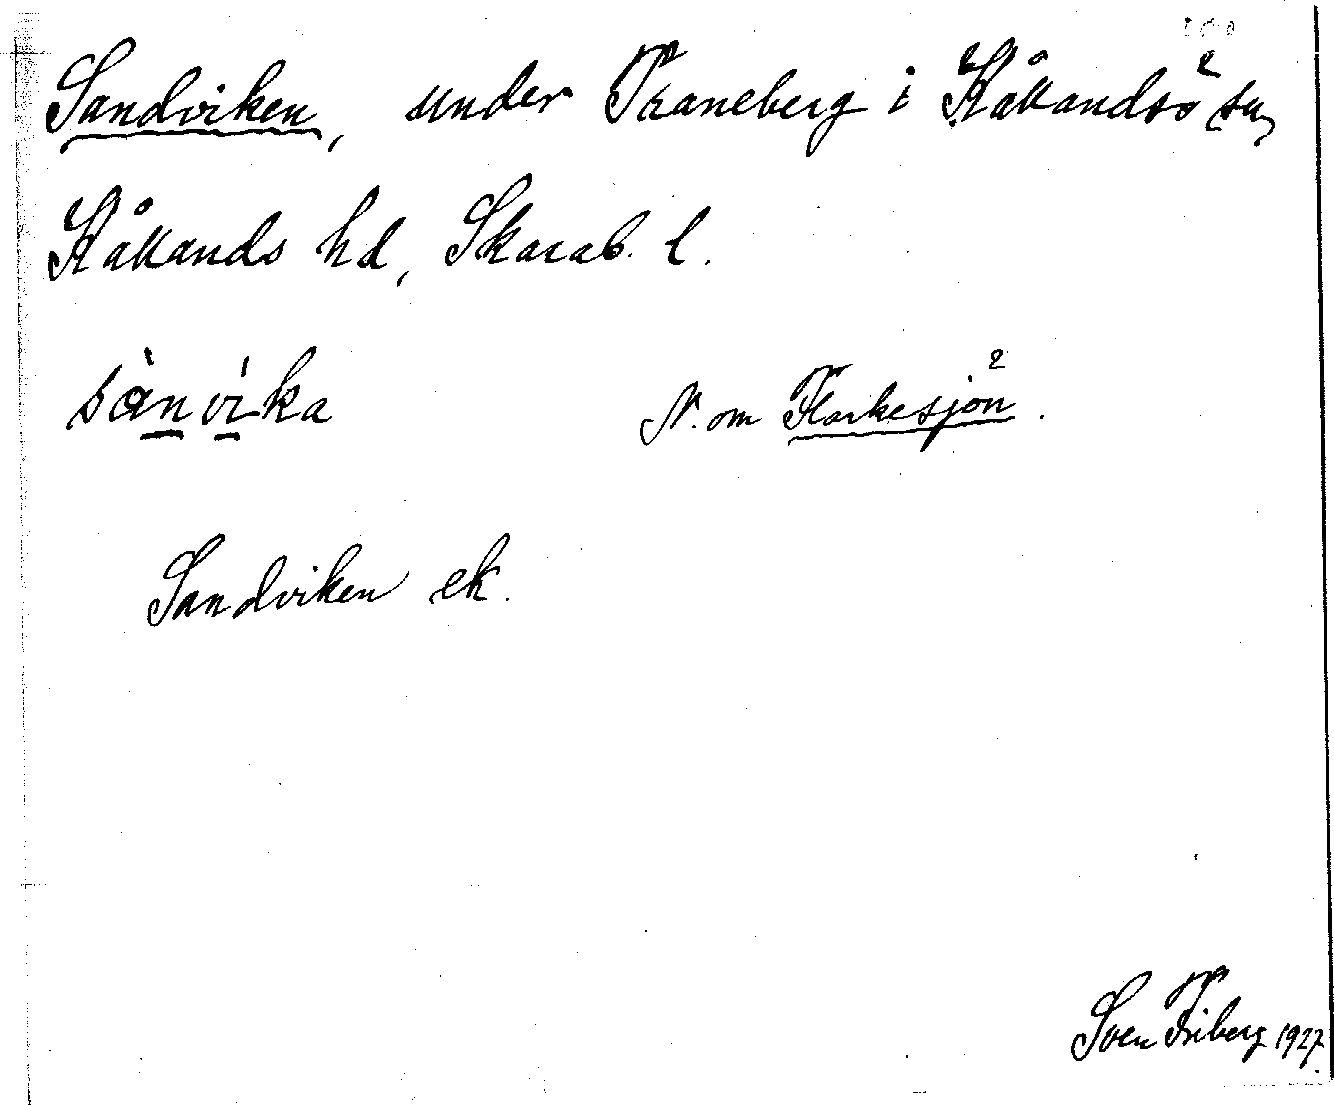 Sandviken, under Traneberg i Kållandsö sn,
Kållands hd, Skarab. l.
sànvíka N. om Flarkesjön.
Sandviken ek.
Sven Friberg 1927.